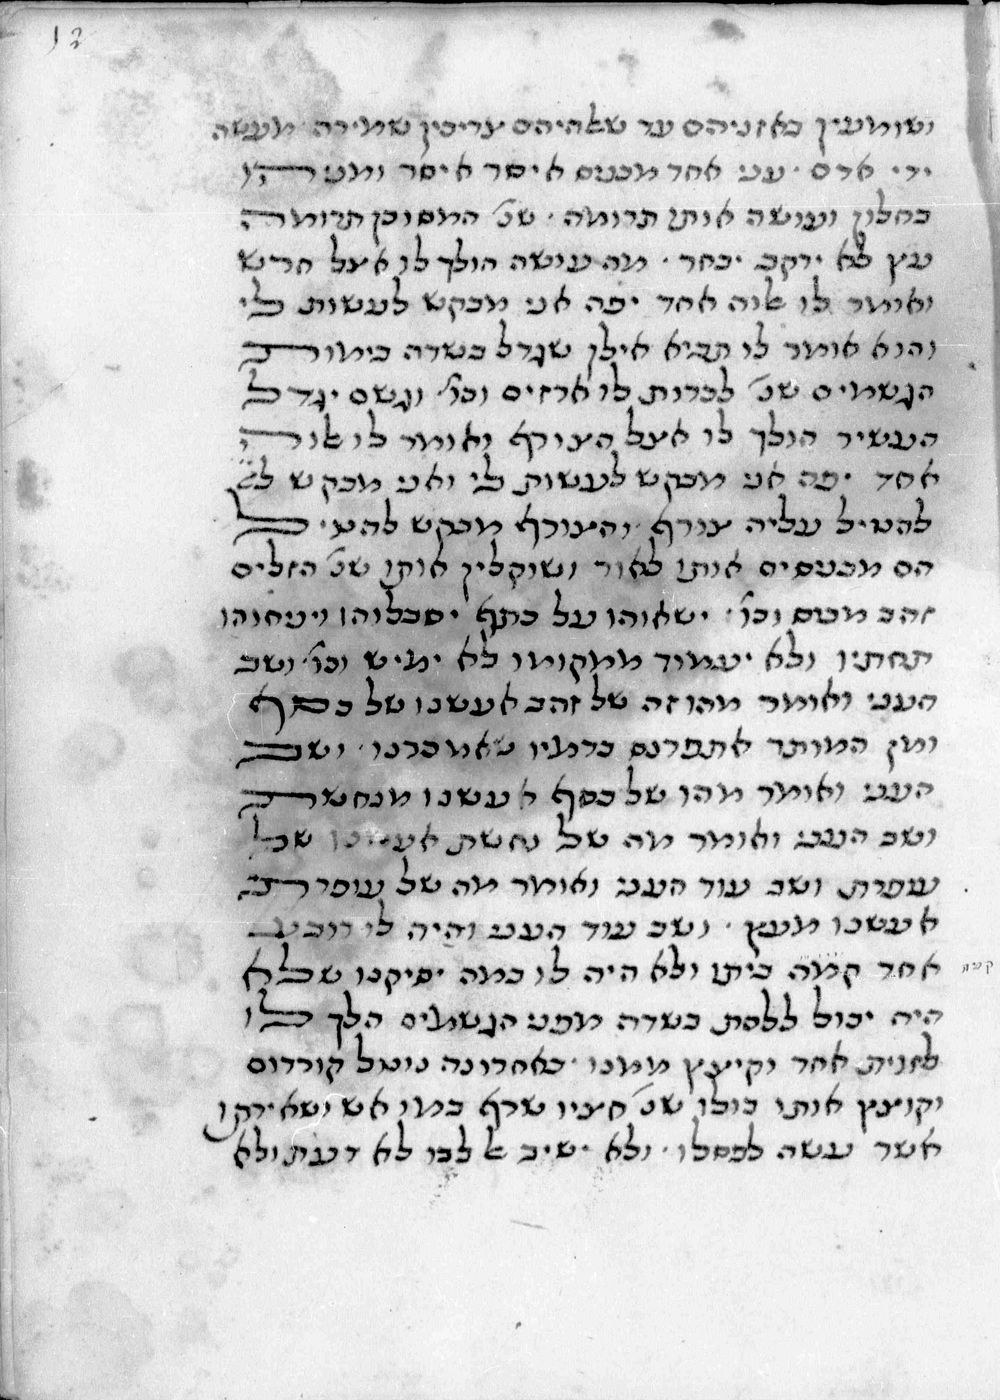 12
ושומעין באזניהם עד שאלהיהם צריכין שמירה מעשה
ידי אדם · עני אחד מכניס איסר איסר ומניחו
בחלון ועושה אותו תרומה · שנ' המסוכן תרומה
עץ לא ירקב יבחר · מה עושה הולך לו אצל חרש
ואומר לו אלוה אחד יפה אני מבקש לעשות לי
והוא אומר לו תביא אילן שגדל בשדה בימות
הגשמים שנ' לכרות לו ארזים וכו' וגשם יגדל
העשיר הולך לו אצל הצורף ואומר לו אלוה
אחד יפה אני מבקש לעשות לי ואני מבקש
להטיל עליה צורף והצורף מבקש להטיל
הם מכניסים אותו לאור ושוקלין אותו שנ' הזלים
זהב מכיס וכו' · ישאוהו על כתף יסבלוהו ויניחוהו
תחתיו ולא יעמוד ממקומו לא ימיש וכו' ושב
העני ואומר מהו זה של זהב אעשנו של כסף
ומן המותר אתפרנס כדמיו שאמכרנו · ושב
העני ואומר מהו של כסף אעשנו מנחשת
ושב העני ואומר מה של נחשת אעשנו של
עופרת ושב עוד העני ואומר מה של עופרת
אעשנו מעץ · ושב עוד העני והיה לו רובע
אחד קמח ביתו ולא היה לו במה יסיקנו שלא
היה יכול ללכת בשדה מפני הגשמים הלך לו
לזוית אחד וקיצץ ממנו · באחרונה נוטל קורדום
וקוצץ אותו כולו שנ' חציו שרף במו אש ושאיריתו
אשר עשה לפסלו · ולא ישיב אל לבו לא דעת ולא